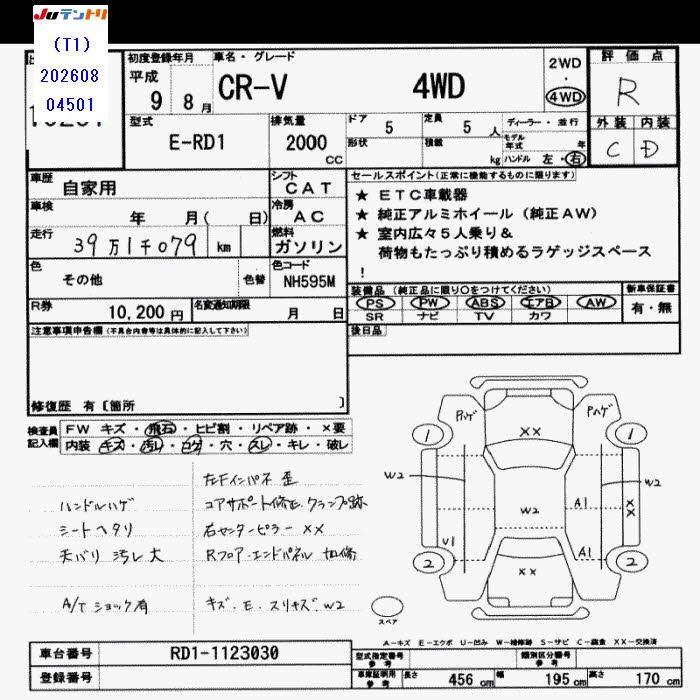 JUテントリ
(T1)
202608
04501
初度登録年月
平成
9 8月
車名・グレード
CR-V 4WD
2WD
・
4WD
評価点
R
外装 内装
C D
型式
E-RD1
排気量
2000
CC
ドア 5
定員 5 人
形状
積載 kg
ディーラー・並行
モデル年式 年
ハンドル 左・右
車歴
自家用
シフト
CAT
車検
年 月( 日)
冷房
AC
走行
39万1千079 km
燃料
ガソリン
色
その他
色替
色コード
NH595M
R券
10,200円
名変通知期限
月 日
セールスポイント(正常に機能するものに限ります)
★ ETC車載器
★ 純正アルミホイール(純正AW)
★ 室内広々5人乗り&
荷物もたっぷり積めるラゲッジスペース
!
装備品(純正品に限り○をつけてください)
PS PW ABS エアB AW
SR ナビ TV カワ
新車保証書
有・無
後日品
注意事項申告欄(不具合内容等は具体的に記入して下さい)
修復歴 有〔箇所 〕
検査員記入欄
FW キズ・飛石・ヒビ割・リペア跡・×要
内装 キズ・汚レ・コゲ・穴・スレ・キレ・破レ
左Fインパネ 歪
ハンドルハゲ
コアサポート修正.クランプ跡
シートヘタリ
右センターピラー ××
天バリ 汚レ大
Rフロア・エンドパネル 加修
A/T ショック有
キズ.E.スリキズ.W2
Pハゲ
Pハゲ
1
××
1
W2
W2
W2
A1
××
U1
A1
2
××
2
スペア
A-キズ E-エクボ U-凹み W-補修跡 S-サビ C-腐食 XX-交換済
車台番号
RD1-1123030
登録番号
型式指定番号
参考
類別区分番号
参考
車庫証明用
参考
長さ 456 cm
幅 195 cm
高さ 170 cm